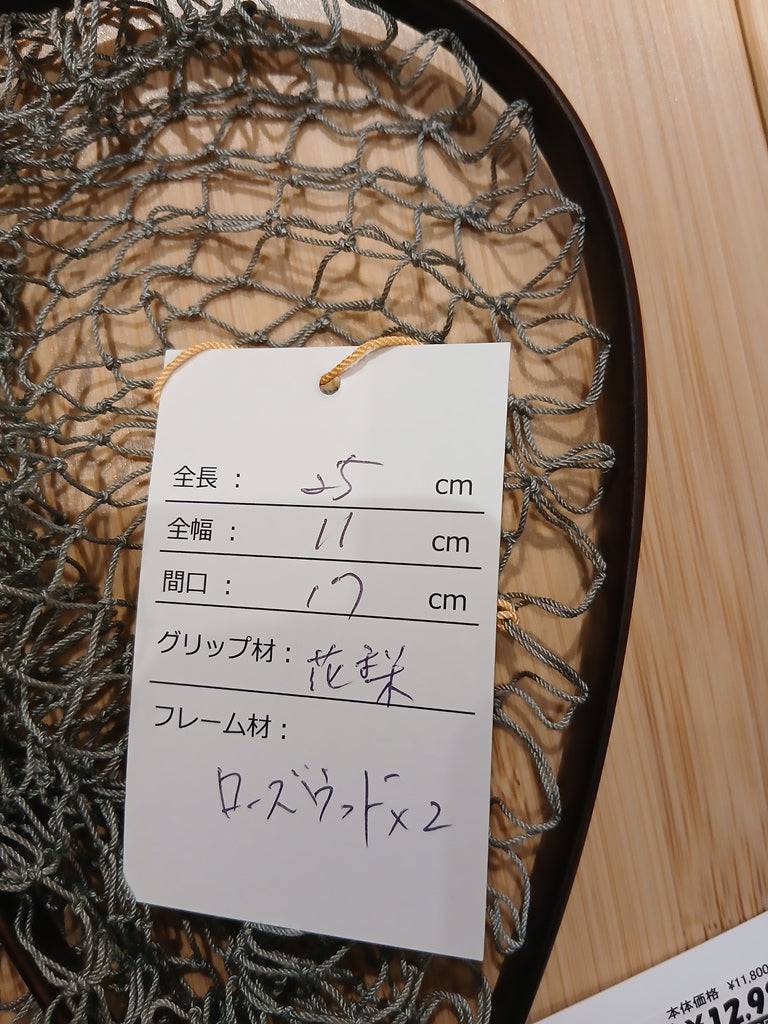 全長： 25 cm
全幅： 11 cm
間口： 17 cm
グリップ材： 花梨
フレーム材：
ローズウッド×2
本体価格 ¥11,800